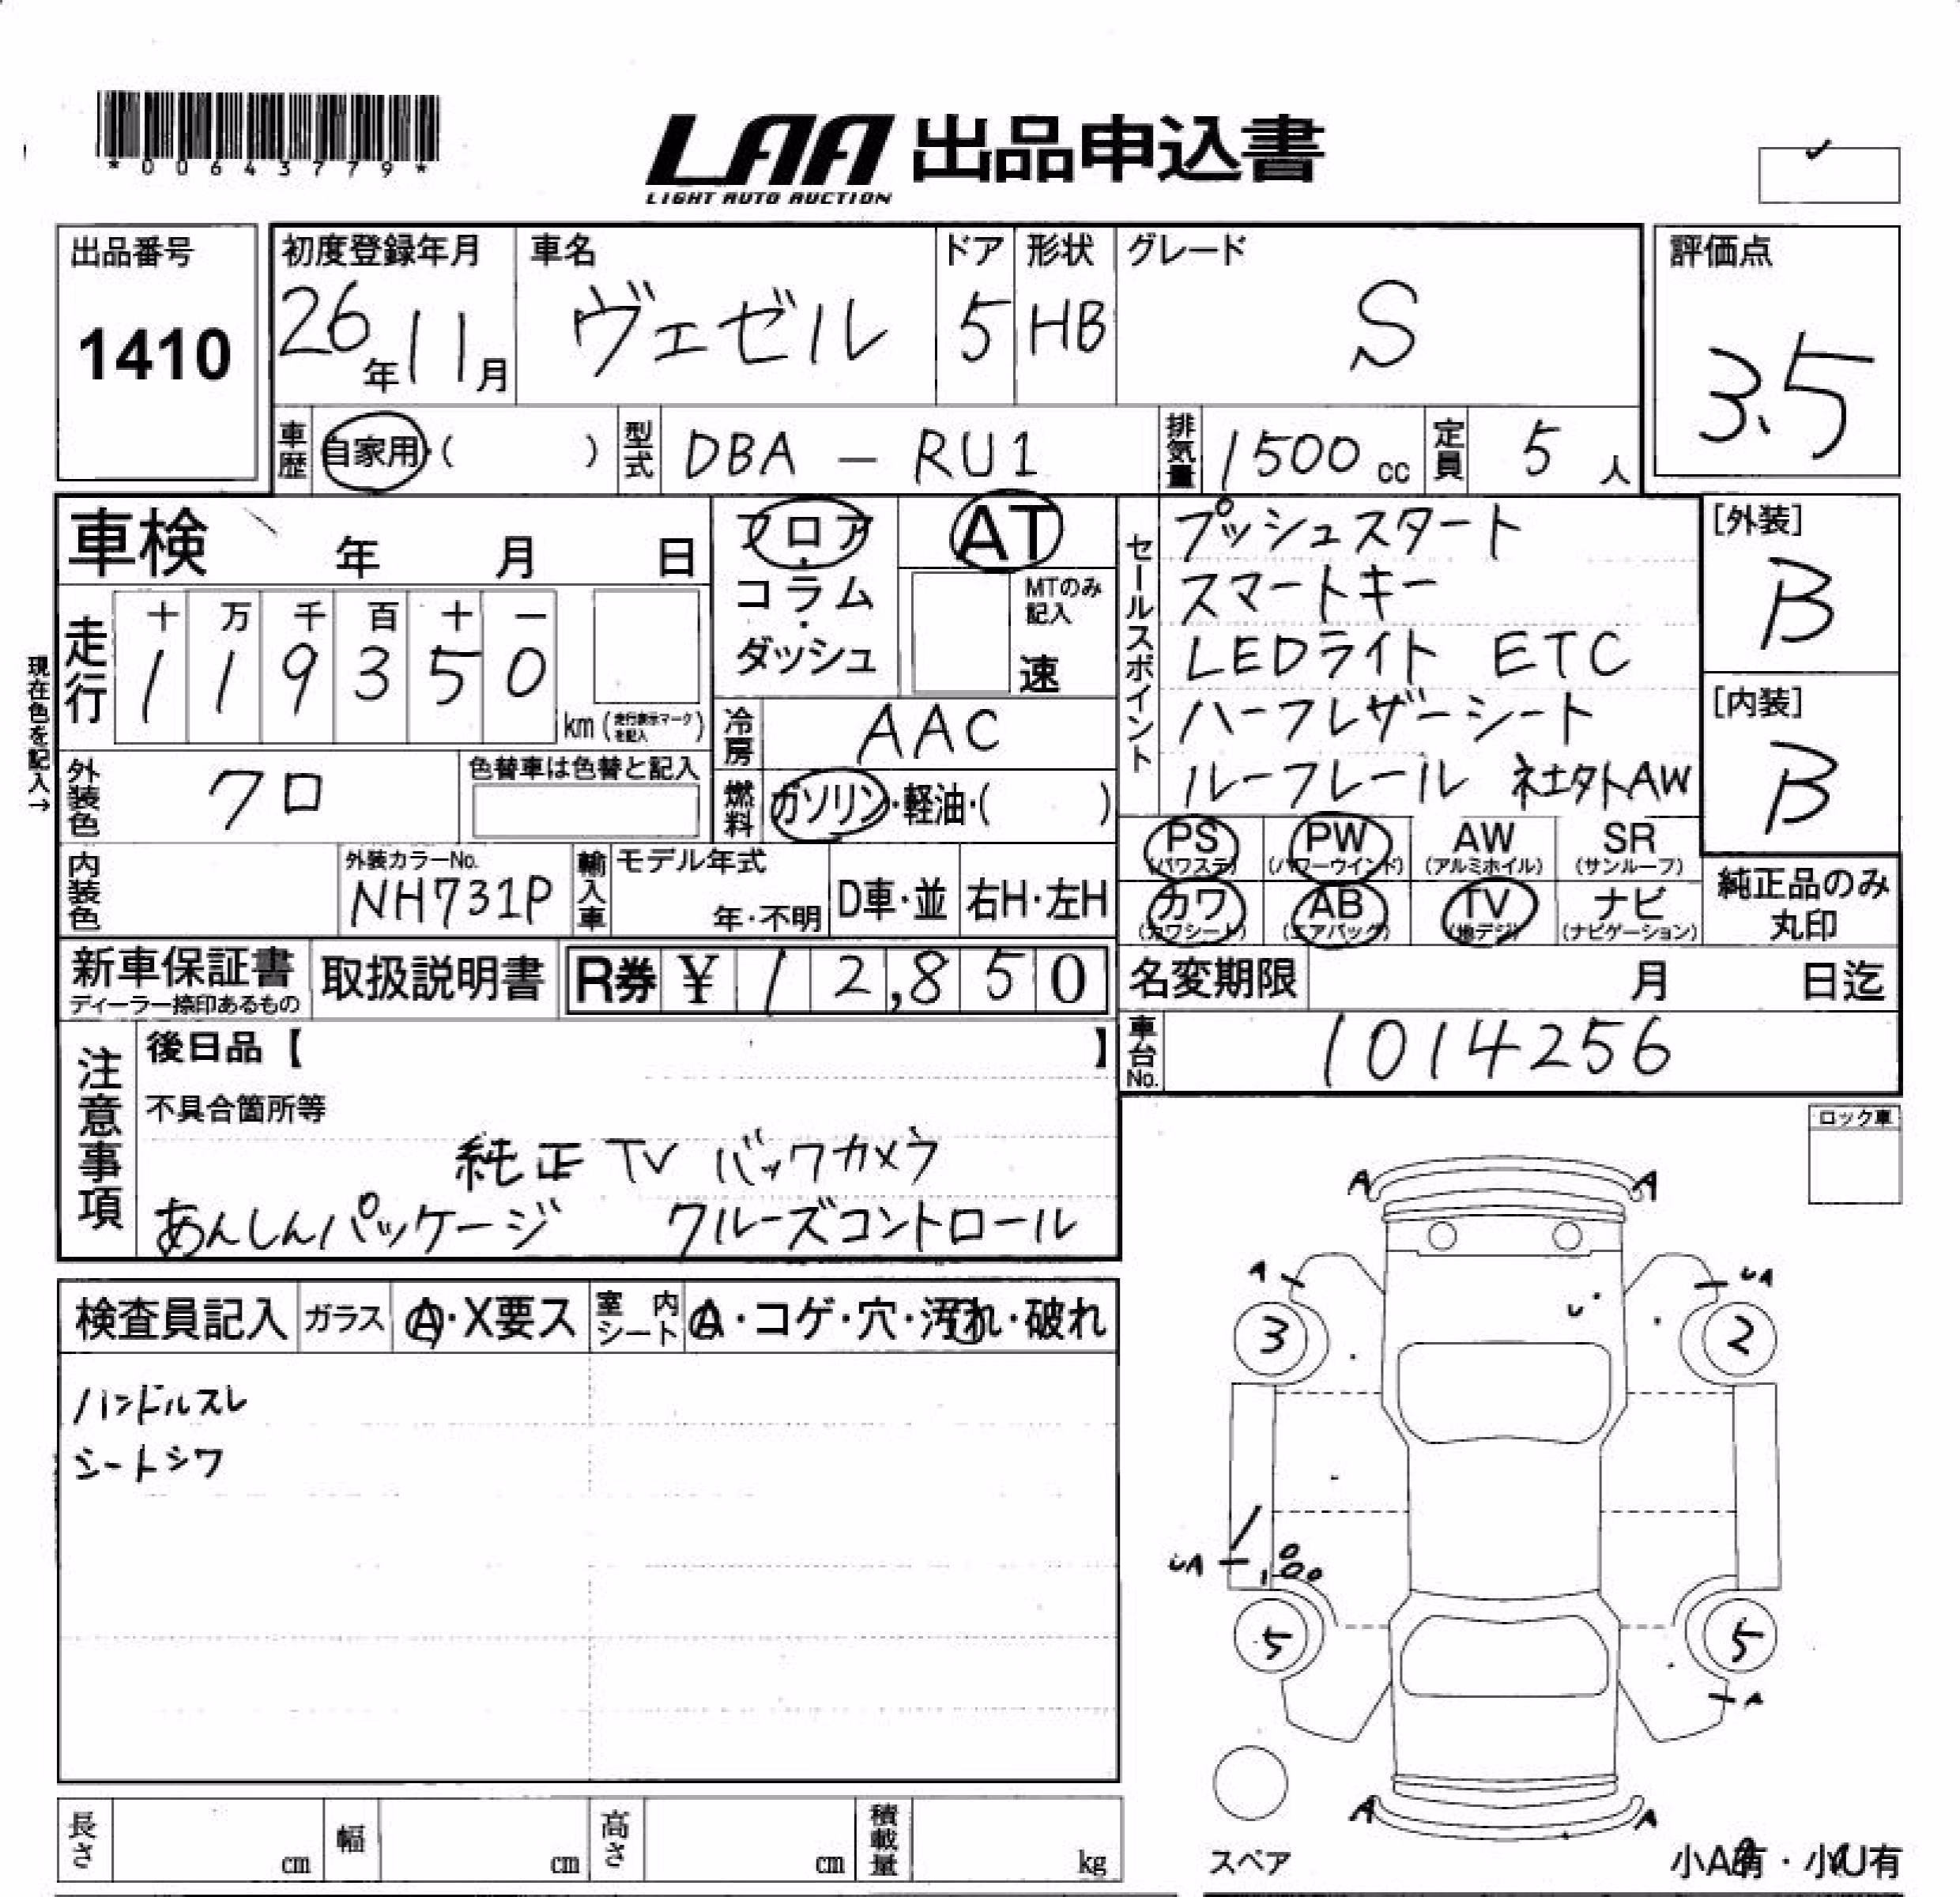 *00643779*
LAA 出品申込書
LIGHT AUTO AUCTION
出品番号
1410
初度登録年月
26年11月
車名
ヴェゼル
ドア
5
形状
HB
グレード
S
評価点
3.5
車歴
自家用・( )
型式
DBA - RU1
排気量
1500 cc
定員
5 人
車検 年 月 日
フロア
・
コラム
・
ダッシュ
AT
MTのみ
記入
速
セールスポイント
プッシュスタート
スマートキー
LEDライト ETC
ハーフレザーシート
ルーフレール 社外AW
[外装]
B
[内装]
B
現在色を記入→
走行
十 万 千 百 十 一
1 1 9 3 5 0
km (走行表示マークを記入)
冷房
AAC
外装色
クロ
色替車は色替と記入
燃料
ガソリン・軽油・( )
PS
(パワステ)
PW
(パワーウインド)
AW
(アルミホイル)
SR
(サンルーフ)
カワ
(カワシート)
AB
(エアバッグ)
TV
(地デジ)
ナビ
(ナビゲーション)
純正品のみ
丸印
内装色
外装カラーNo.
NH731P
輸入車
モデル年式
年・不明
D車・並
右H・左H
新車保証書
ディーラー捺印あるもの
取扱説明書
R券 ¥ 12,850
名変期限 月 日迄
車台No.
1014256
注意事項
後日品【 】
不具合箇所等
純正TV バックカメラ
あんしんパッケージ クルーズコントロール
ロック車
検査員記入
ガラス
A・X要ス
室内シート
A・コゲ・穴・汚れ・破れ
ハンドルスレ
シートシワ
A A
A UA
U
3 2
UA
5 5
A
A A
スペア
小A有・小U有
長さ cm
幅 cm
高さ cm
積載量 kg